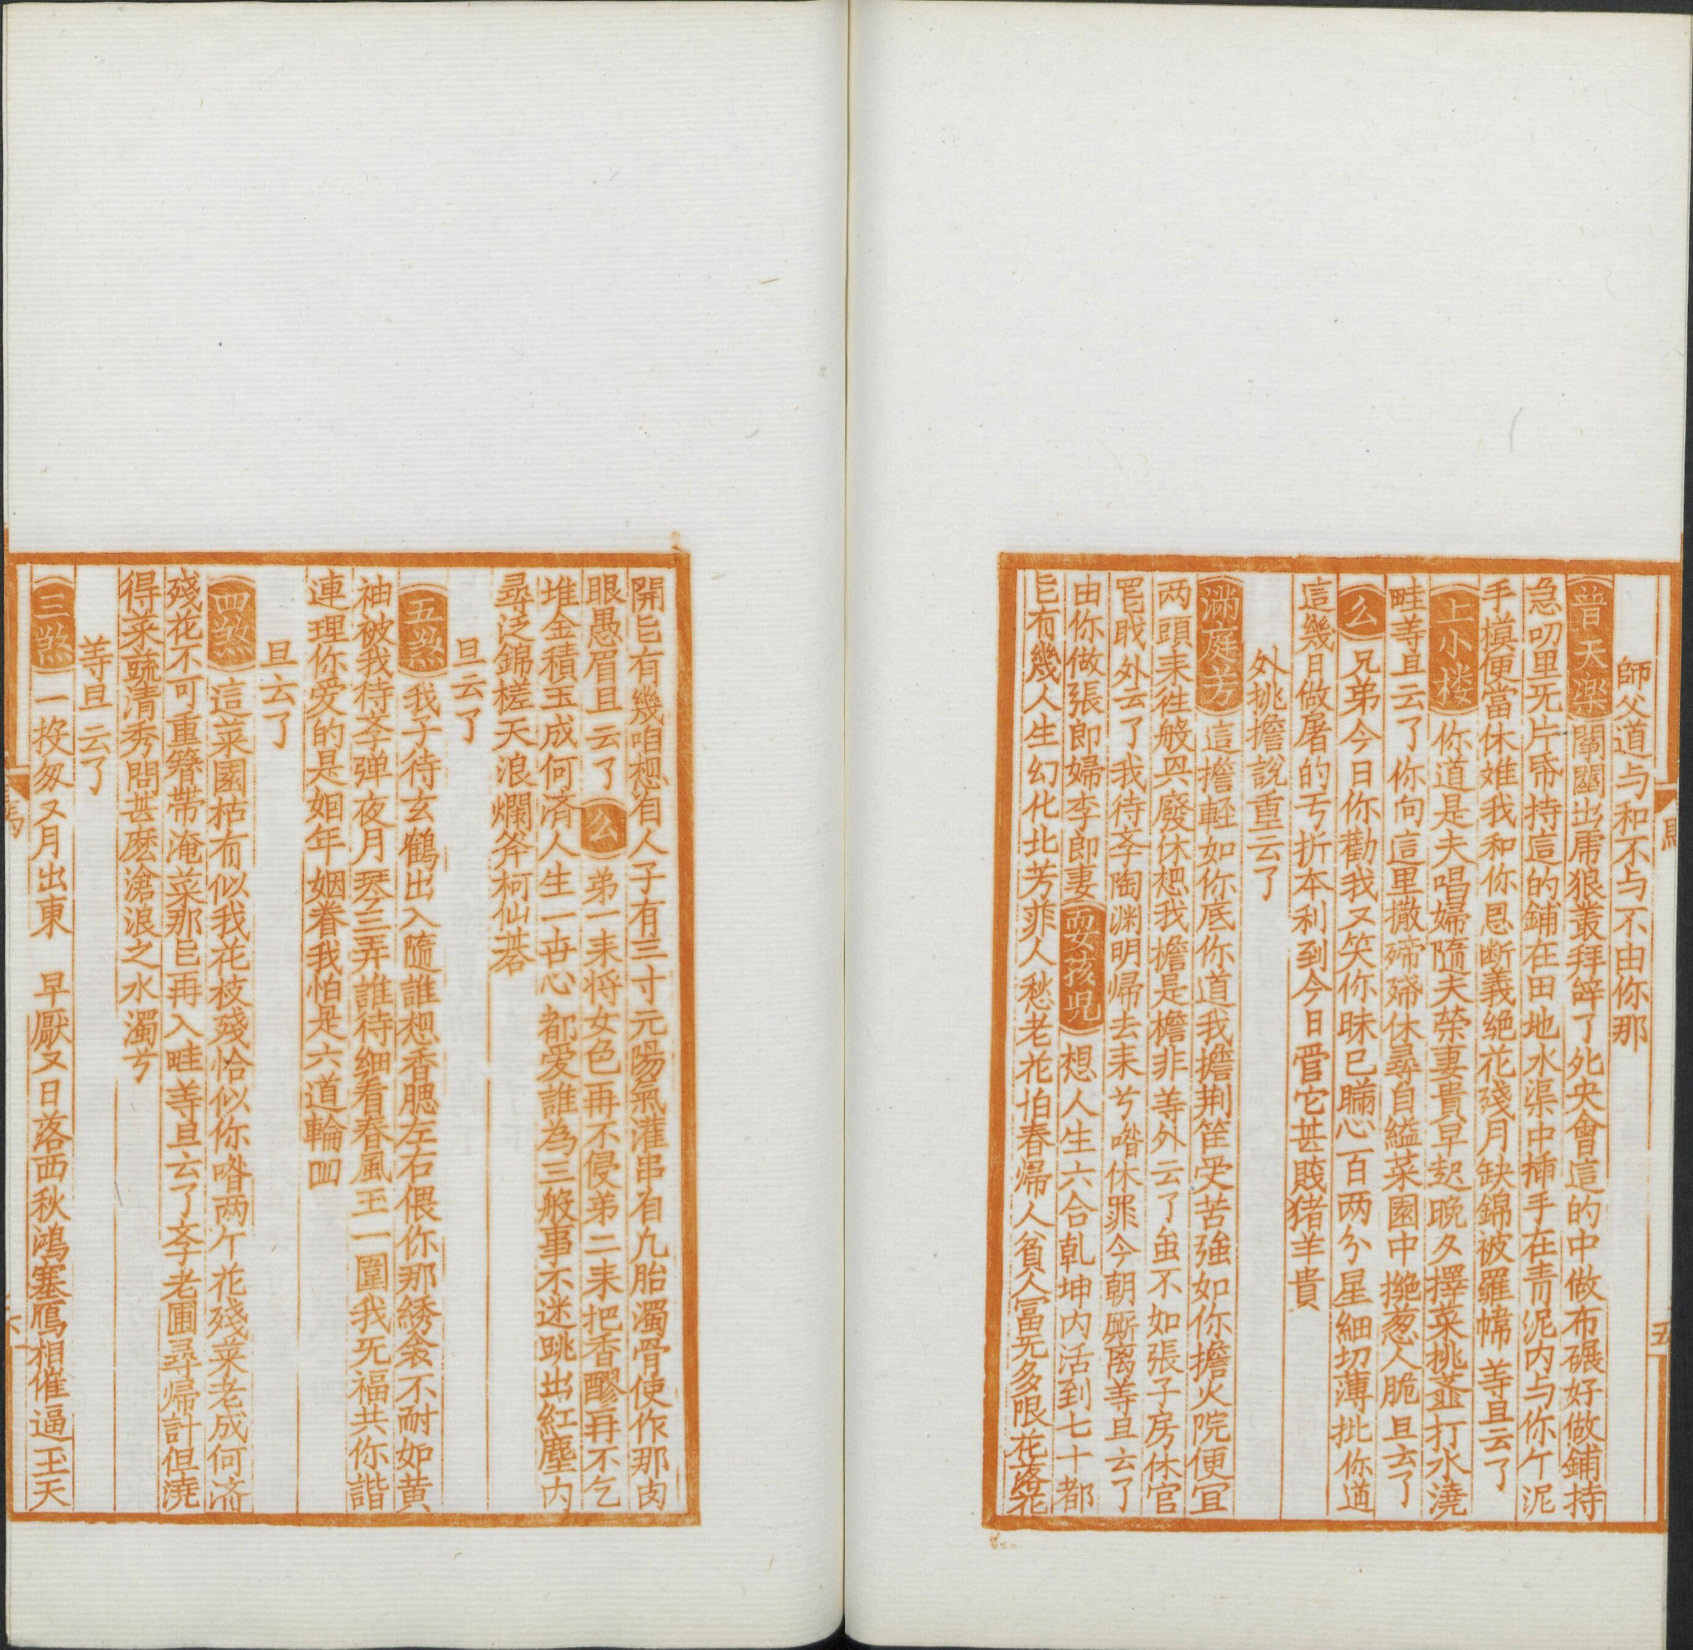 師父道与和不与不由你那
普天楽 鬧𡈽出虎狼叢拜辞了死央會這的中做布碾好做鋪持
急叨里无片帋持這的鋪在田地水渠中揷手在青泥内与你亇泥
手模便當休难我和你恩断義絶花殘月缺錦被羅幃 等旦云了
上小楼 你道是夫唱婦隨夫荣妻貴早起晚夕擇菜挑韮打水澆
畦等旦云了你向這里撒啼殢休尋自縊菜園中摧葱人脆旦云了
么 兄弟今日你勸我又笑你昧己瞞心一百两分星細切薄批你遒
這幾月做屠的亏折本利到今日管它甚賤猪羊貴
外挑擔說重云了
滿庭芳 這擔輕如你底你道我擔荆笙受苦強如你擔火院便冝
两頭来徃般㒷廢休想我擔是擔非 等外云了虽不如張子房休官
罢戝外云了我待斈陶渊明帰去来兮喒休罪今朝厮离等旦云了
由你做張郎婦李郎妻 耍孩児 想人生六合乹坤内活到七十都
㠯有幾人生幻化北芳菲人愁老花怕春帰人貧人冨无多限花落花
開㠯有幾咱想有人子有三寸元陽氣灌串有九胎濁骨使作那肉
眼愚眉且云了 么 弟一来将女色再不侵弟二来把香醪再不乞
堆金積玉成何済人生一世心都爱誰為三般事不迷跳出紅塵内
尋泛錦槎天浪爛斧柯仙碁
旦云了
五煞 我子待玄鶴出入隨誰想香腮左右偎你那綉衾不耐如黄
䄂被我待斈弹夜月琴三弄誰待细看春風玉一圍我死福共你諧
連理你爱的是姻年姻眷我怕是六道輪囬
旦云了
四煞 這菜園枯有似我花枝殘恰似你喒两亇花殘菜老成何済
殘花不可重簪带淹菜那㠯再入畦等旦云了斈老圃尋帰計但澆
得菜蔬清秀問甚麽滄浪之水濁兮
等旦云了
三煞 一投匆又月出東 早厭又日落西秋鴻塞鴈相催逼玉天